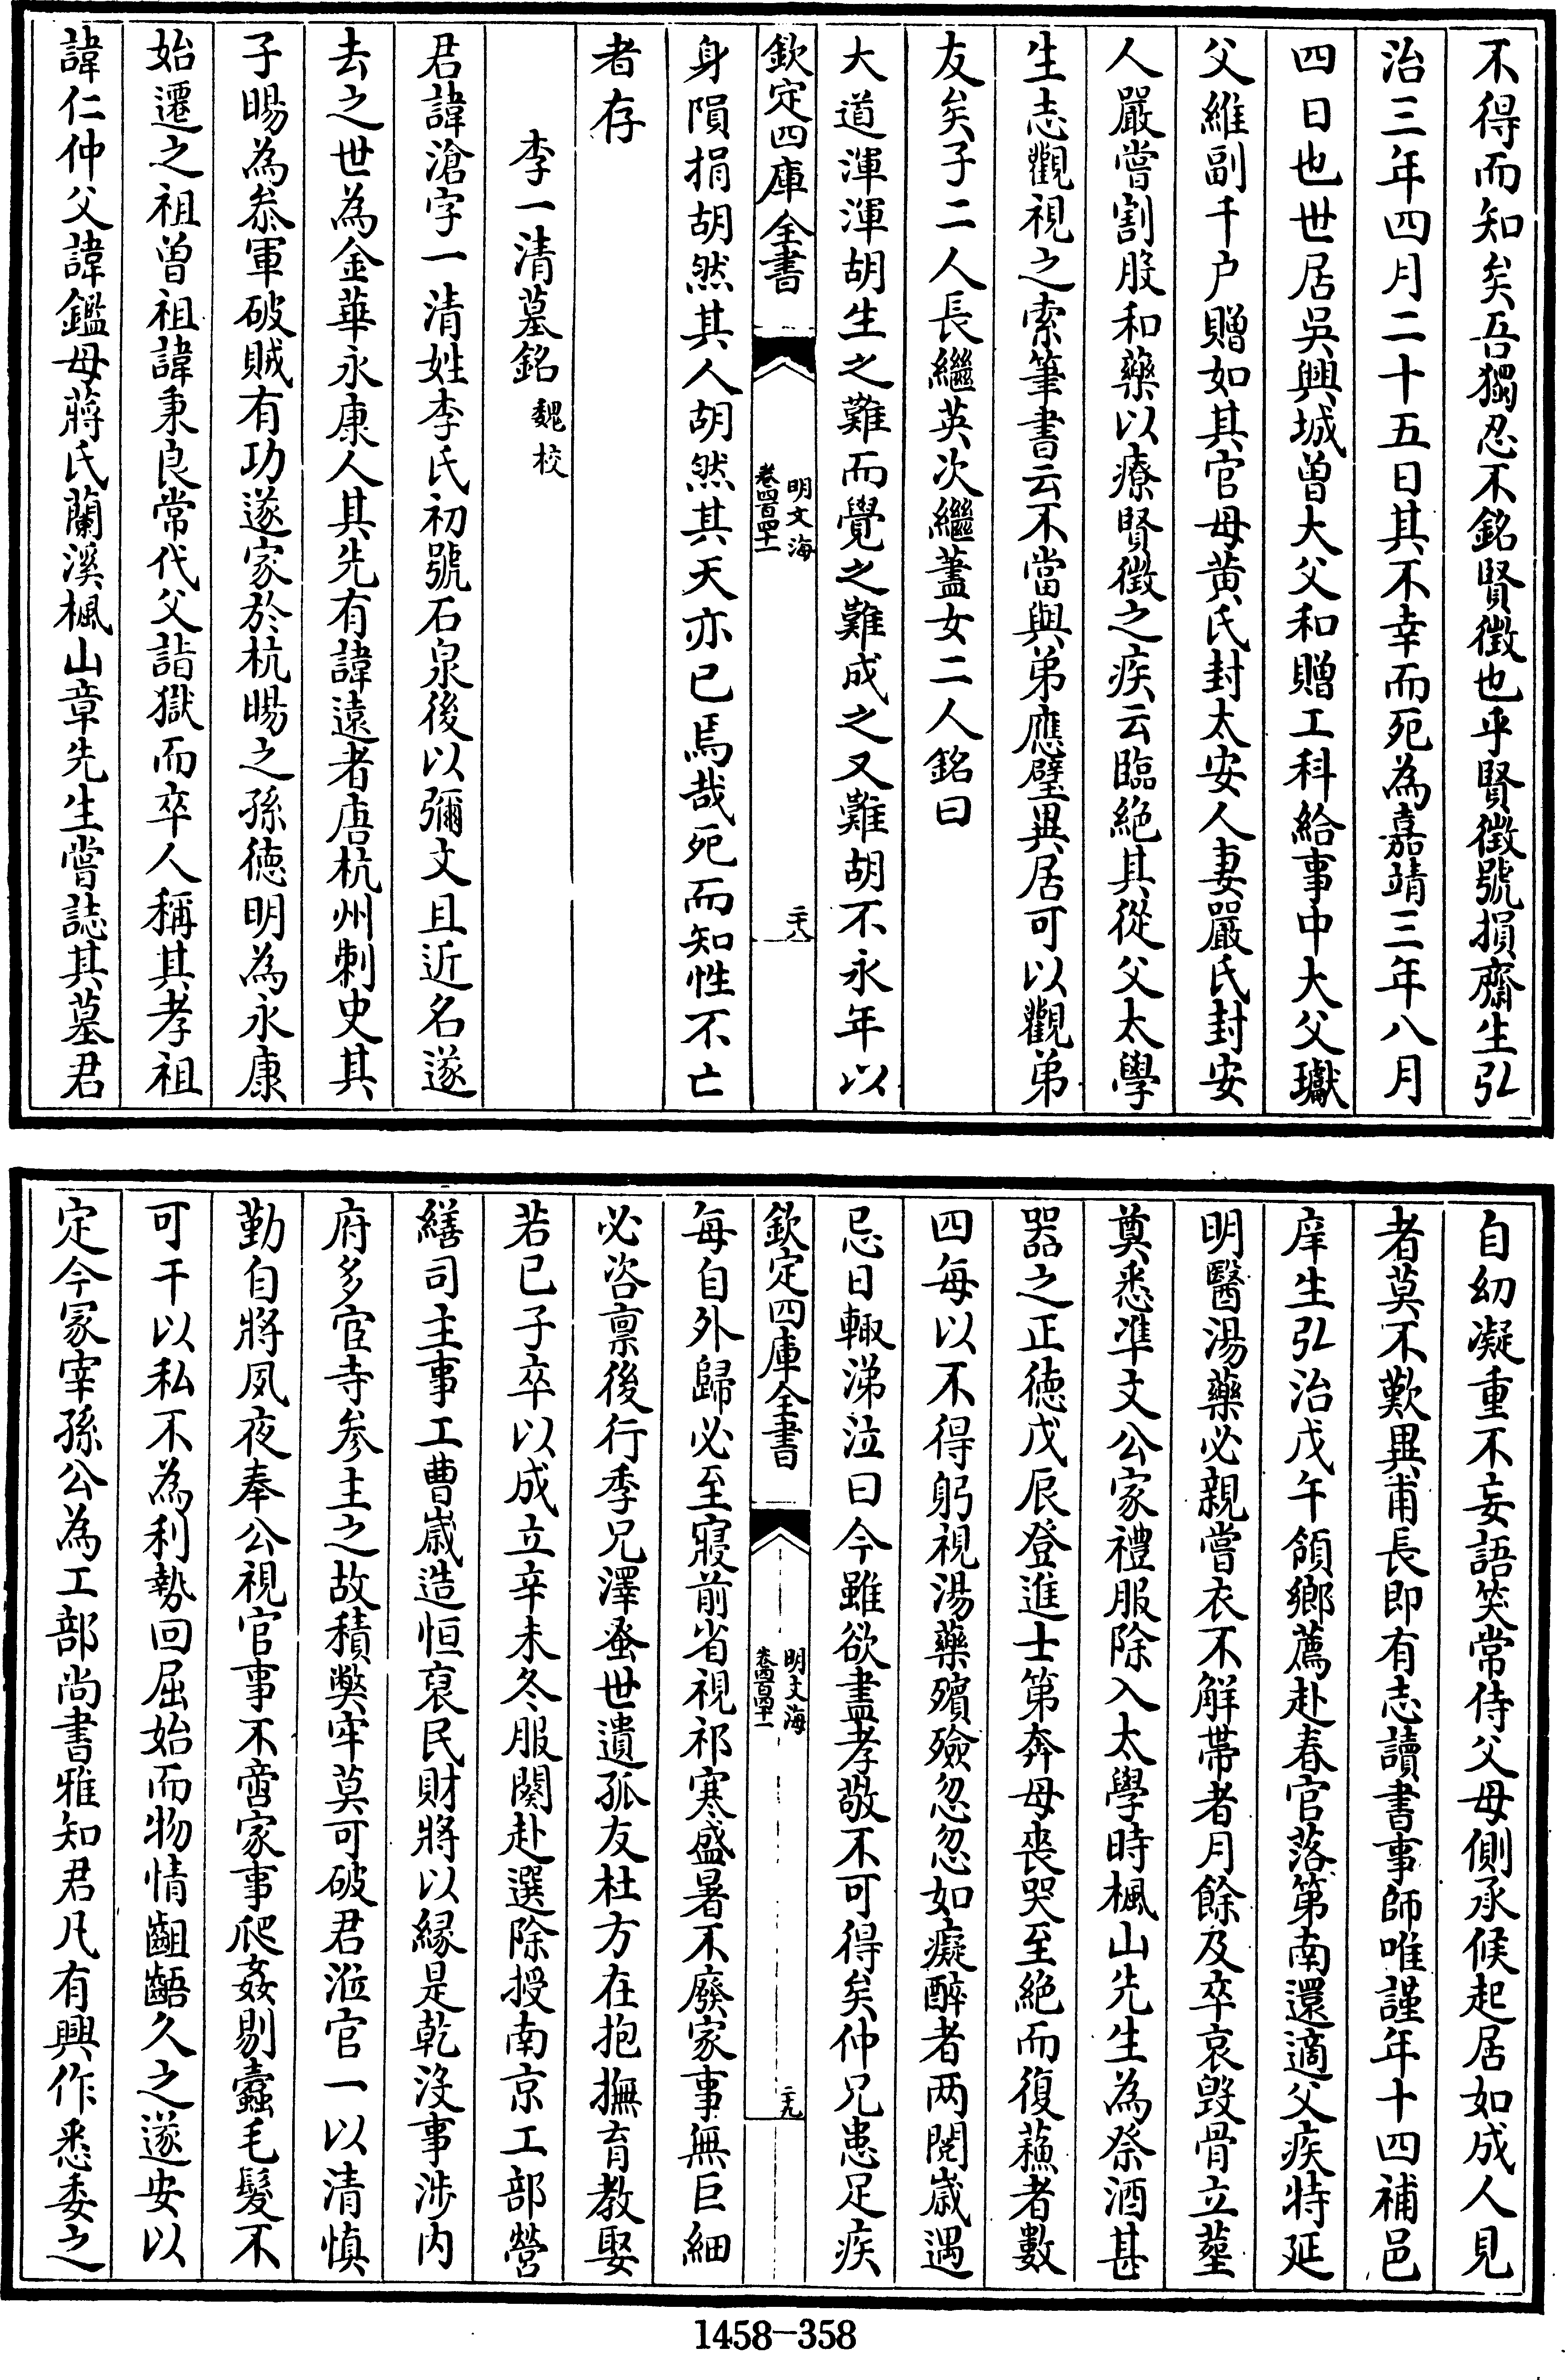 不得而知矣吾獨忍不銘賢徵也乎賢徵號損齋生弘
治三年四月二十五日其不幸而死為嘉靖三年八月
四日也世居吳興城曾大父和贈工科給事中大父瓛
父維副千户贈如其官母黄氏封太安人妻嚴氏封安
人嚴嘗割股和藥以療賢徵之疾云臨絶其從父太學
生志觀視之索筆書云不當與弟應璧異居可以觀弟
友矣子二人長繼英次繼蓋女二人銘曰
大道渾渾胡生之難而覺之難成之又難胡不永年以
欽定四庫全書
明文海
卷四百四十一
二十八
身隕捐胡然其人胡然其天亦已焉哉死而知性不亡
者存
李一清墓銘 魏校
君諱滄字一清姓李氏初號石泉後以彌文且近名遂
去之世為金華永康人其先有諱遠者唐杭州刺史其
子暘為叅軍破賊有功遂家於杭暘之孫徳明為永康
始遷之祖曾祖諱秉良常代父詣獄而卒人稱其孝祖
諱仁仲父諱鑑母蔣氏蘭溪楓山章先生嘗誌其墓君
自幼凝重不妄語笑常侍父母側承候起居如成人見
者莫不歎異甫長即有志讀書事師唯謹年十四補邑
庠生弘治戊午領鄉薦赴春官落第南還適父疾特延
明醫湯藥必親嘗衣不解帶者月餘及卒哀毀骨立塟
奠悉準文公家禮服除入太學時楓山先生為祭酒甚
器之正徳戊辰登進士第奔母喪哭至絶而復蘓者數
四每以不得躬視湯藥殯殮忽忽如癡醉者两閱嵗遇
忌日輙涕泣曰今雖欲盡孝敬不可得矣仲兄患足疾
欽定四庫全書
明文海
卷四百四十一
二十九
每自外歸必至寢前省視祁寒盛暑不廢家事無巨細
必咨禀後行季兄澤蚤世遺孤友杜方在抱撫育教娶
若已子卒以成立辛未冬服闋赴選除授南京工部營
繕司主事工曹嵗造恒裒民財將以緣是乾没事涉内
府多宦寺參主之故積弊牢莫可破君涖官一以清慎
勤自將夙夜奉公視官事不啻家事爬姦剔蠹毛髮不
可干以私不為利勢回屈始而物情齟齬久之遂安以
定今冢宰孫公為工部尚書雅知君凡有興作悉委之
1458-358